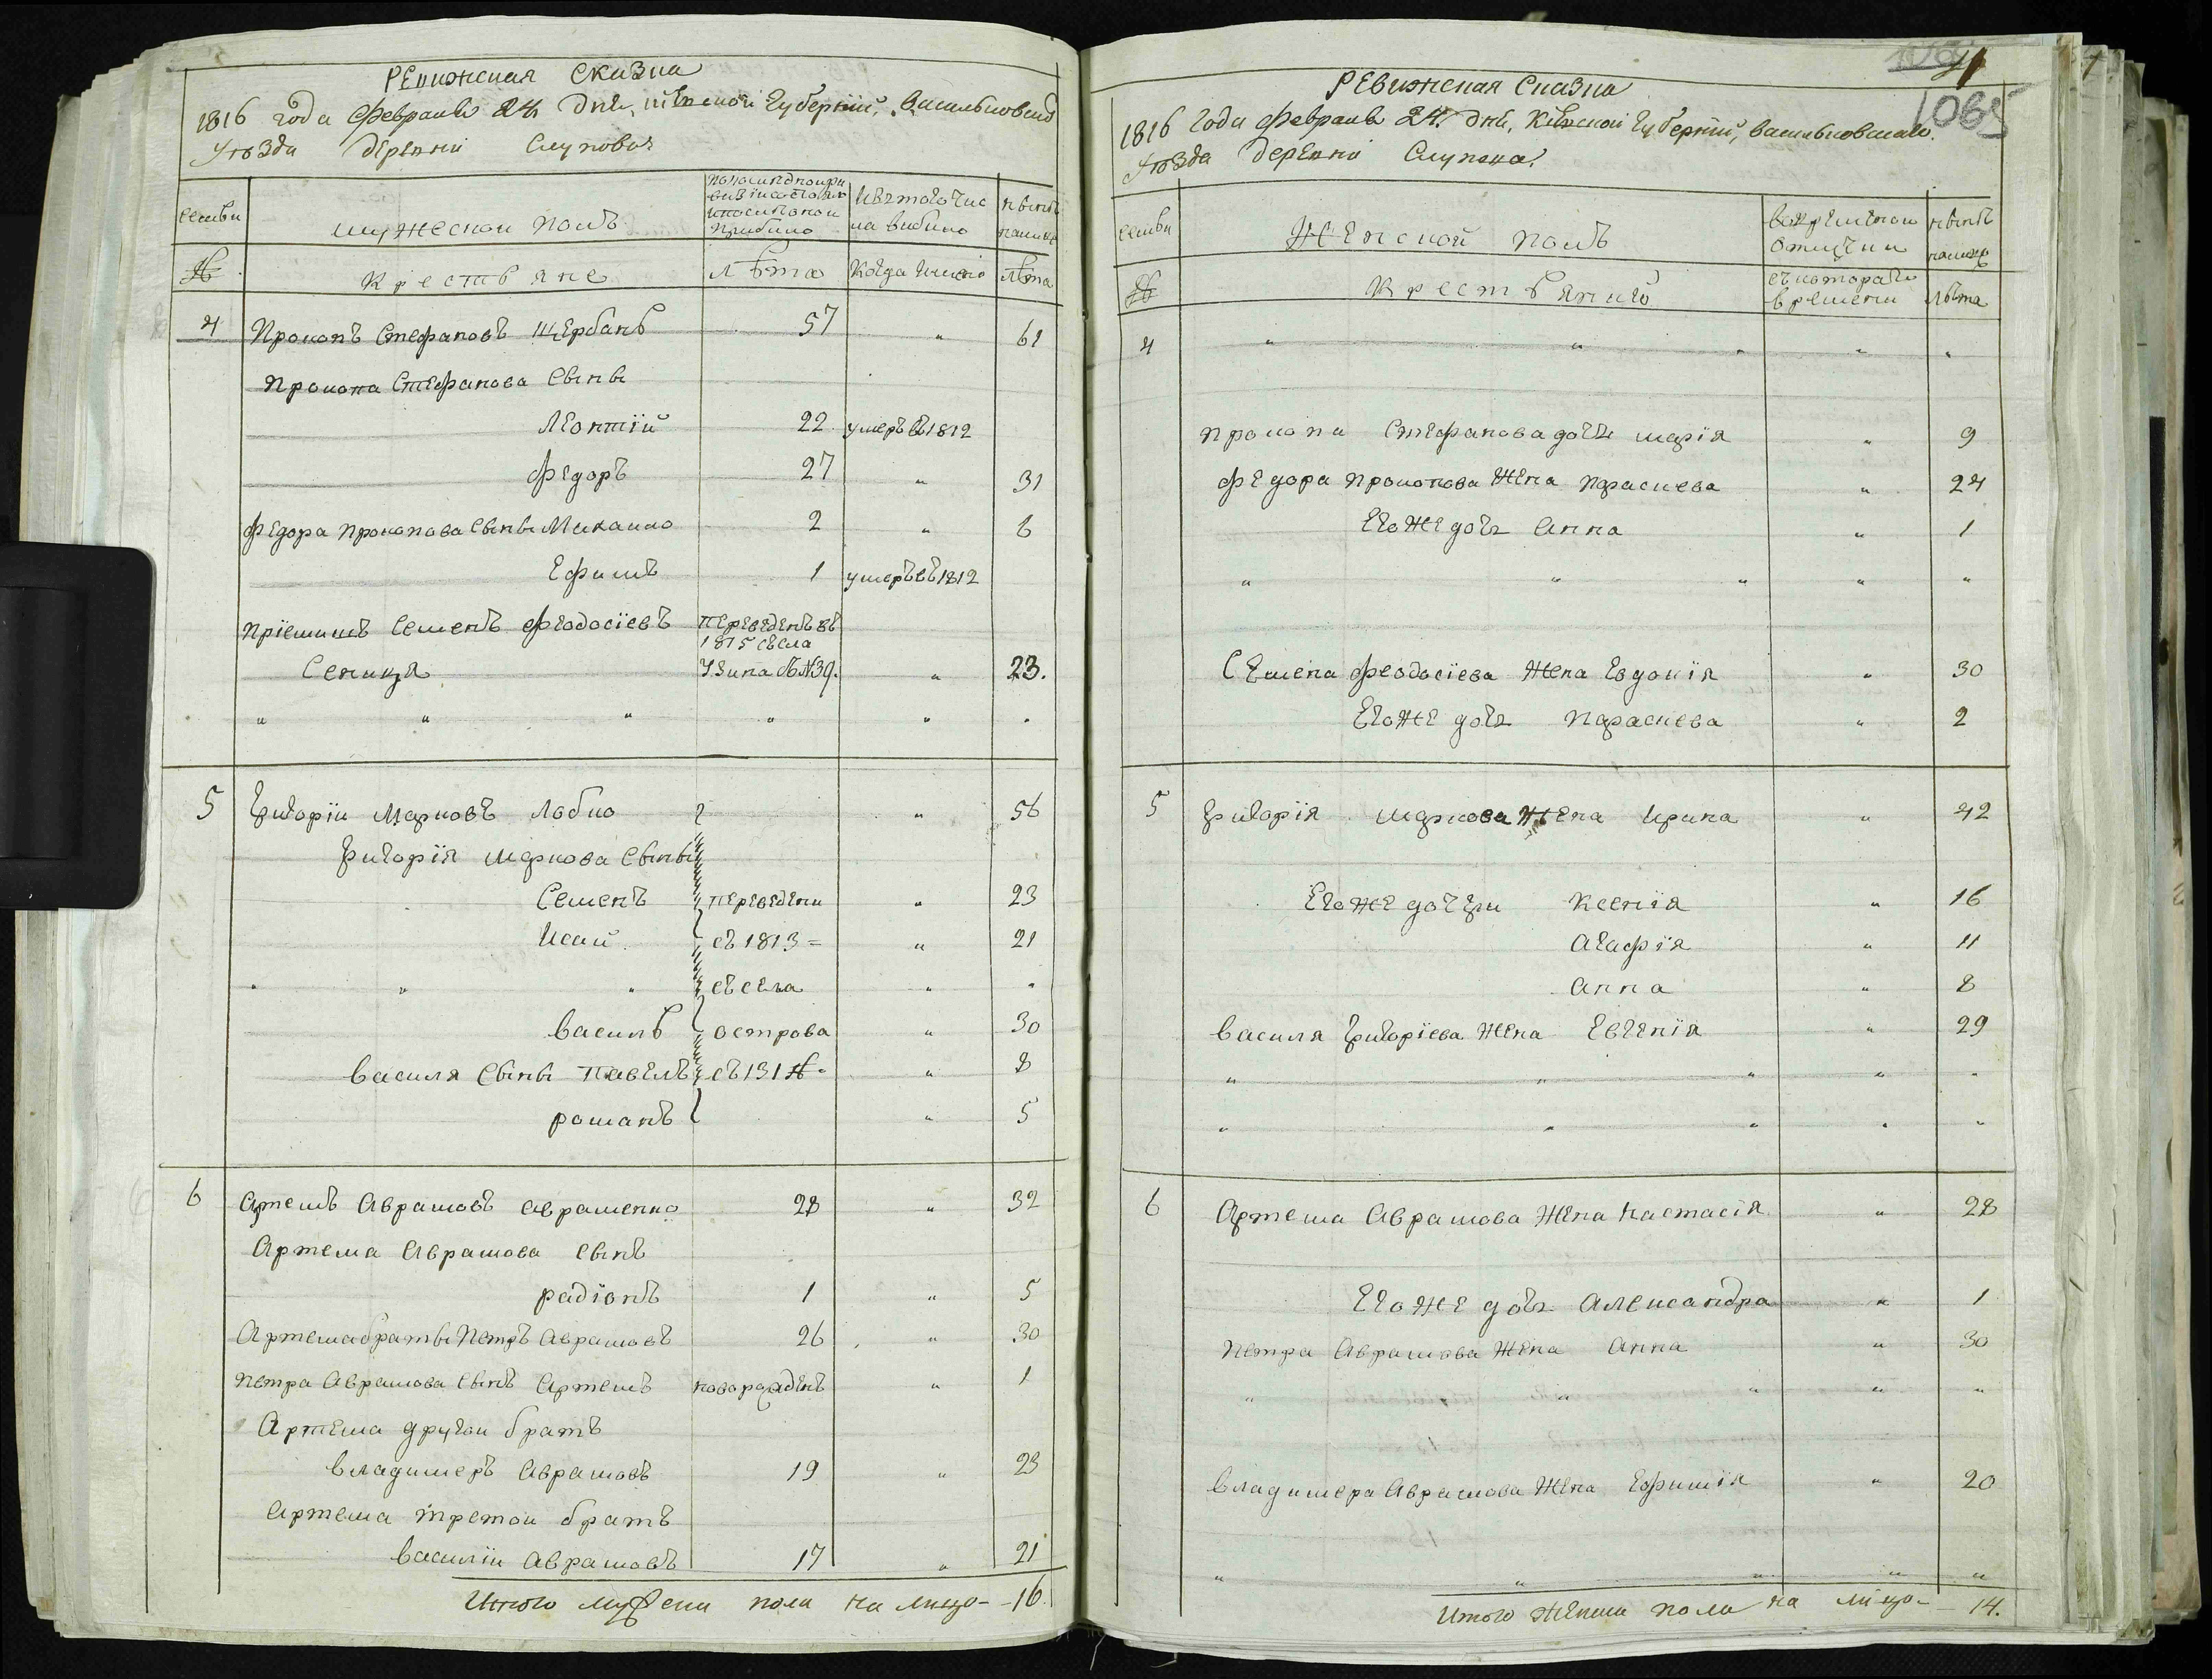 Ревижская сказка
1816 года февраля 24 дня, Киевской губернїи, васильковскаго
уѣзда деревни Слупокъ
семьи
мужеской полъ
Изътого числа выбыло
нынѣ налицо
№
крестьяне
лѣта
когда имено
лѣта
4 Прокопъ Стефановъ щербанъ 57 " 61
Прокопа Стефанова сыны
Леонтїй 22 умеръ въ 1812
федоръ 27 " 31
федора Прокопова сыны Михаило 2 " 6
Ефимъ 1 умеръ въ 1812
прїемышъ семенъ феодосїевъ переведенъ въ
1815 съ села
Сеница Узина съ №39. " 23.
" " " " " "
5 григорїи марковъ лобко " 56
григорїя маркова сыны
Семенъ переведены " 23
Исай съ 1813= " 21
" " " съ села " "
василь острова " 30
василя сыны павелъ съ 131 №= " 8
романъ " 5
6 Артемъ аврамовъ авраменко 28 " 32
Артема аврамова сынъ
радїонъ 1 " 5
Артема братьи петръ аврамовъ 26 " 30
петра аврамова сынъ артемъ новорожденъ " 1
Артема другои братъ
владимеръ аврамовъ 19 " 23
артема третои братъ
василїи аврамовъ 17 " 21
Итого мужеска пола на лицо- -16.
41
1065
Ревижская сказка
1816 года февраля 24. дня, Киевской губернїи, васильковскаго.
уѣзда деревни Слупока.
семьи
женской полъ
вовременной отлучки
нынѣ налицо
№
крестьянкѣ
съ котораго времени
лѣта
4 " " " " "
прокопа стефанова дочь марїя " 9
федора прокопова жена параскева " 24
егоже дочь анна " 1
" " " " "
Семена феодосїева жена евдокїя " 30
егоже дочь параскева " 2
5 григорїя маркова жена ирина " 42
егоже дочери ксенїя " 16
агафїя " 11
анна " 8
василя григорїева жена евгенїя " 29
" " " " "
" " " " "
6 Артема аврамова жена настасїя " 28
егоже дочь александра " 1
петра аврамова жена анна " 30
" " " " "
владимера аврамова жена ефимїя " 20
" " " " "
Итого женска пола на лицо- - 14.